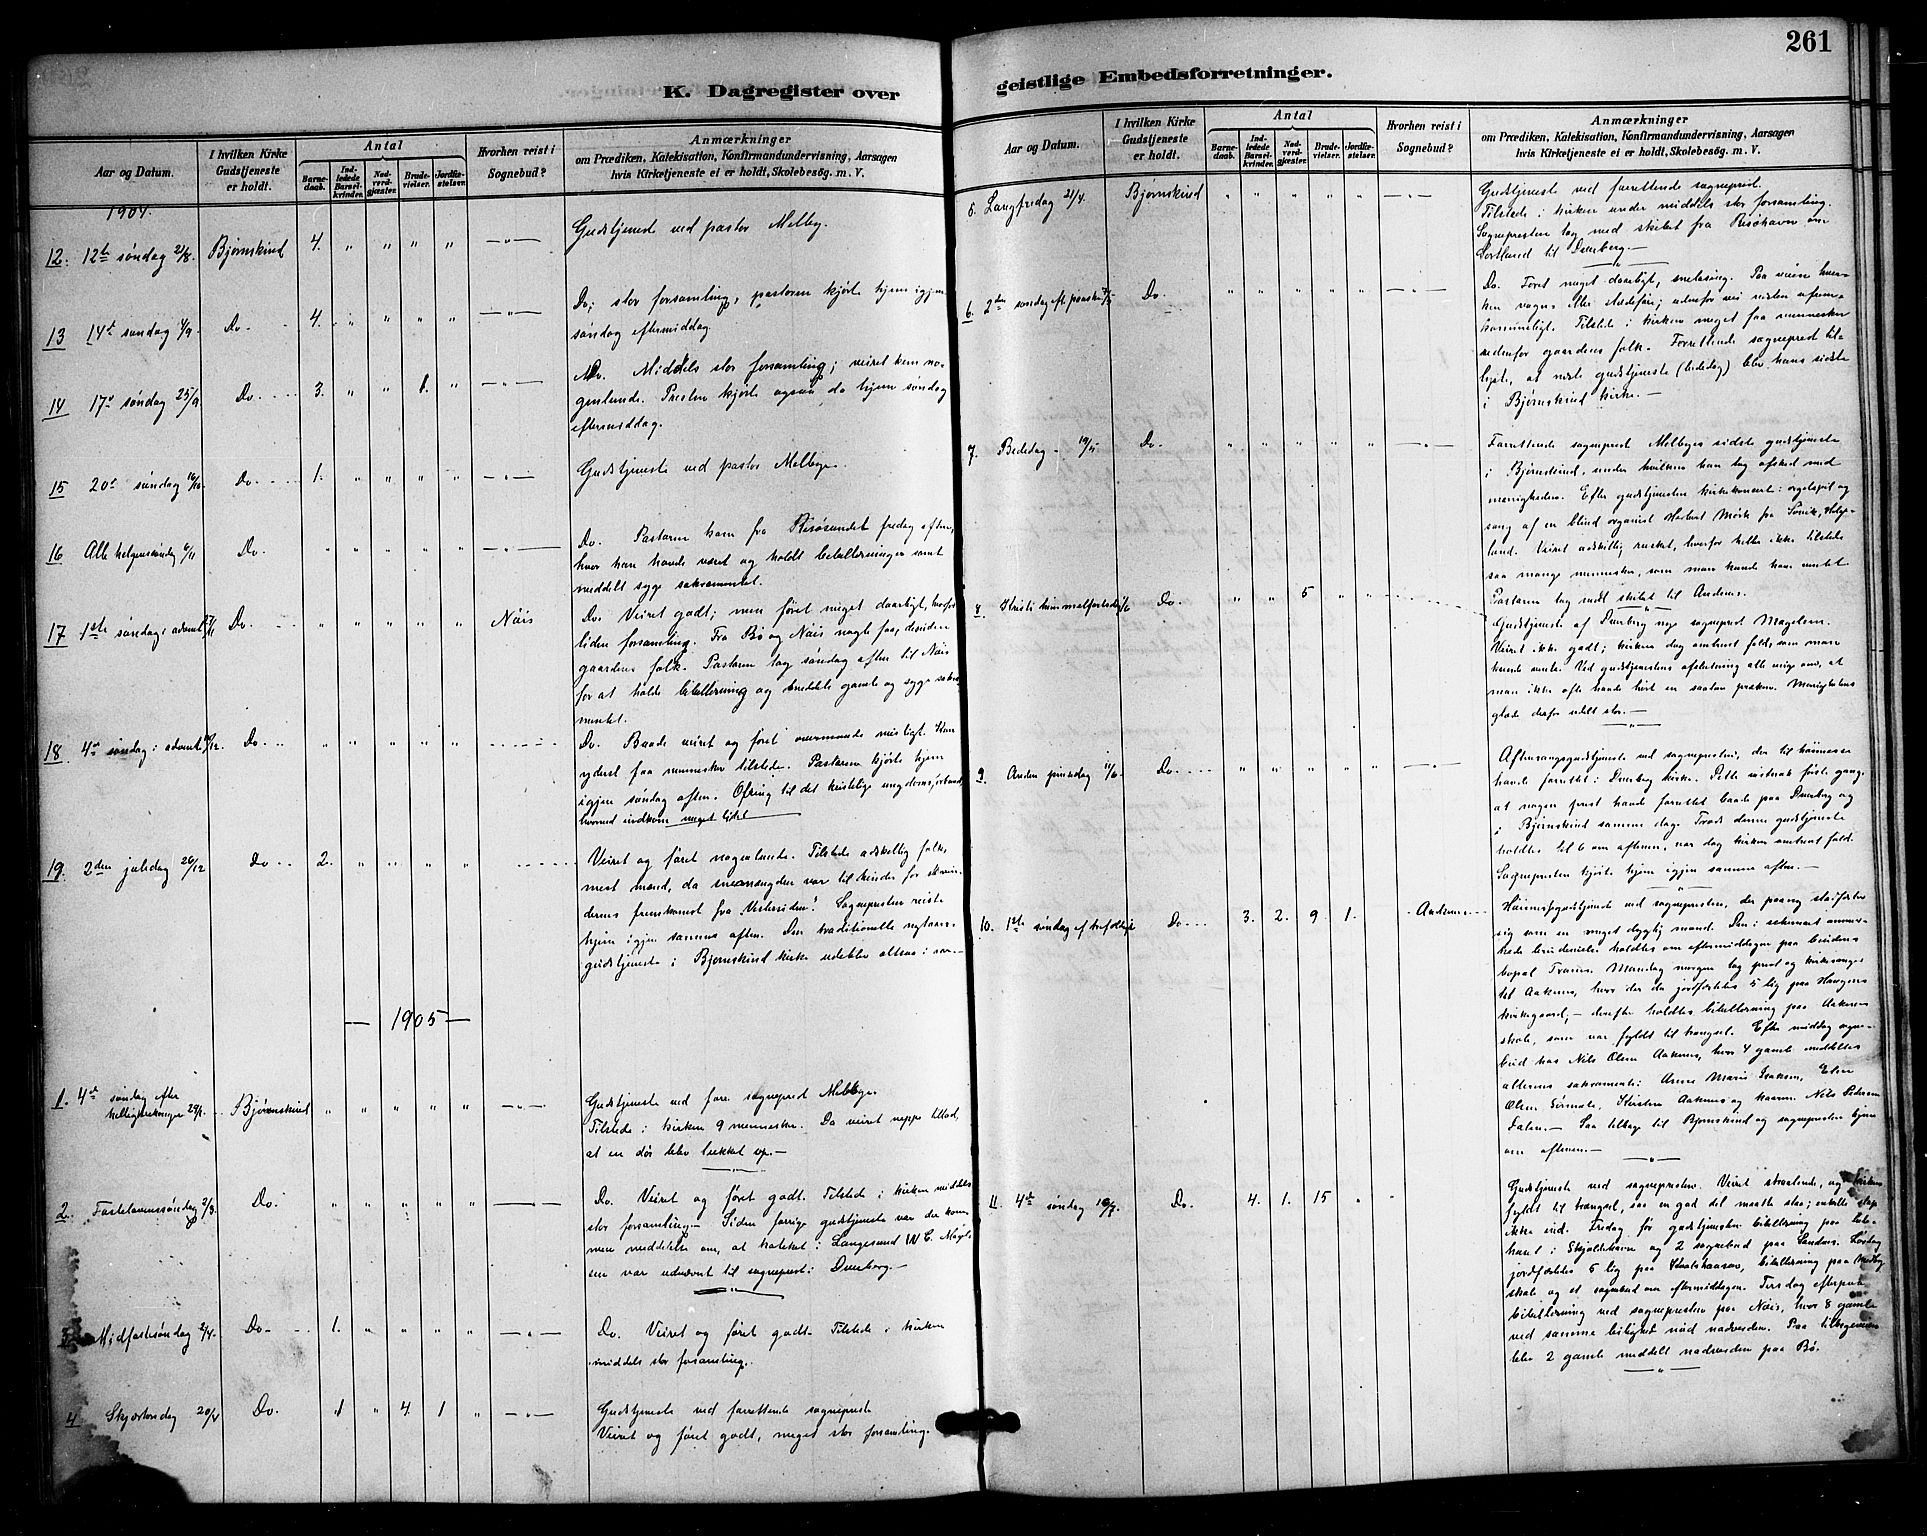 261
K. Dagregister over
geistlige Embedsforretninger.
Aar og Datum.
I hvilken Kirke Gudstjeneste er holdt.
Antal
Barnedaab.
Indledede Barselkvinder.
Nadverdgjæster.
Brudevielser.
Jordfæstelser.
Hvorhen reist i Sognebud?
Anmærkninger
om Prædiken, Katekisation, Konfirmandundervisning, Aarsagen
hvis Kirketjeneste ei er holdt, Skolebesøg. m. V.
1904.
12. 12te søndag 21/8. Bjørnskind 4. " " " " —"— Gudstjeneste ved pastor Melbey.
13 14d søndag 4/9. Do. 4. " " " " —"— Do; stor forsamling, pastoren kjørte hjem igjen
søndag eftermiddag.
14 17d søndag 25/9. Do. 3. " " 1. " —"— Do. Middels stor forsamling; veiret kem no-
genlunde. Presten kjørte ogsaa da hjem søndag
eftermiddag.
15 20d søndag 16/10. Do. 1. " " " " —"— Gudstjeneste ved pastor Melbye.
16 Alle helgensøndag 6/11 Do. " " " " " —"— Do. Pastoren kom fra Risøsundet fredag aften,
hvor han havde været og holdt bibellæsninger samt
meddelt syge sakramentet.
17 1ste søndag i advent 27/11 Do. " " " " " Nöis Do. Veiret godt; men føret meget daarligt, hvorfor
liden forsamling. Fra Bø og Nöis nogle faa, desuden
gaardens folk. Pastoren tog søndag aften til Nöis
for at holde bibellæsning og meddele gamle og syge sakra-
mentet.
18 4de søndag i advent 18/12. Do. " " " " " Do. Baade veiret og føret overmaade misligt. Kun
yderst faa mennesker tilstede. Pastoren kjørte hjem
igjen søndag aften. Ofring til det kristelige ungdomsforbund,
hvorved indkom meget lidet
19. 2den juledag 26/12 Do. 2. " " " " Veiret og føret nogenlunde. Tilstede adskellig folk,
mest mænd, da snemængden var til hinder for kvin-
dernes fremkomst fra "Vestersiden". Sognepresten reiste
hjem igjen samme aften. Den traditionelle nytaars-
gudstjeneste i Bjørnskind kirke udeblev altsaa i aar—
— 1905 —
1. 4de søndag efter
helligtrekonger 29/1. Bjørnskind " " " " " —"— Gudstjeneste ved forr. sogneprest Melbye.
Tilstede i kirken 9 mennesker. Da veiret neppe tillod,
at en dør blev lukket op.—
2. Fastelavenssøndag 5/3. Do. " " " " " —"— Do. Veiret og føret godt. Tilstede i kirken middels
stor forsamling.— Siden forrige gudstjeneste var der kom-
men meddelelse om, at kateket i Langesund W. C. Magels-
sen var udnævnt til sogneprest i Dverberg.—
Midfastesøndag 2/4. Do. 1. " " " " —"— Do. Veiret og føret godt. Tilstede i kirken
middels stor forsamling.
4 Skjærtorsdag 20/4 Do. 1 " 4. 1 " —"— Gudstjeneste ved forrettende sogneprest
Veiret og føret godt, meget stor forsamling.
Aar og Datum.
I hvilken Kirke Gudstjeneste er holdt.
Antal
Barnedaab.
Indledede Barselkvinder.
Nadverdgjæster.
Brudevielser.
Jordfæstelser.
Hvorhen reist i Sognebud?
Anmærkninger
om Prædiken, Katekisation, Konfirmandundervisning, Aarsagen
hvis Kirketjeneste ei er holdt, Skolebesøg. m. V.
5. Langfredag 21/4. Bjørnskind " " " " " —"— Gudstjeneste ved forrettende sogneprest.
Tilstede i kirken under middels stor forsamling.
Sognepresten tog med skibet fra Risøhavn om
Sortland til Dverberg.—
6. 2den søndag eft. paaske 7/5 Do. " " " " " —"— Do. Føret noget daarligt, sneløsning. Paa veien hver-
ken vogn- eller slædeføre; udenfor vei næsten ufrem-
kommeligt. Tilstede i kirken meget faa mennesker
udenfor gaardens folk. Forrettende sogneprest til-
lyste, at næste gudstjeneste (bededag) blev hans sidste
i Bjørnskind kirke.—
7. Bededag 19/5 Do. " " " " " —"— Forrettende sogneprest Melbyes sidste gudstjeneste
i Bjørnskind, under hvilken han tog afsked med
menigheden. Efter gudstjenesten kirkekoncert: orgelspil og
sang af en blind organist Harbert Mörk fra
land. Veiret adskillig rusket, hvorfor heller ikke tilstede
saa mange mennesker, som man kunde have ventet
Pastoren tog med skibet til Andenes.
8. Kristi himmelfartsdag 1/6 Do. " " 5 " " Gudstjeneste af Dverberg nye sogneprest Magelssen.
Veiret ikke godt; kirken dog omtrent fuld, som man
kunde vente. Ved gudstjenestens afslutning alle enige om, at
man ikke ofte havde hørt en saadan præken. Menighedens
glæde derfor udelt stor.—
9. Anden pinsedag 11/6. Do. " " " " " —"— Aftensangsgudstjeneste ved sognepresten, der til höimesse
havde forrettet i Dverberg kirke. Dette indtraf første gang,
at nogen prest havde forrettet baade paa Dverberg og
i Bjørnskind samme dag. Trods denne gudstjeneste
holdtes til 6 om aftenen, var dog kirken omtrent fuld.
Sognepresten kjørte hjem igjen samme aften.—
10. 1ste søndag ef. trefoldigh. Do. 3. 2. 9 1. Aaknes. Høimessegudstjeneste ved sognepresten, der paany stadfæstede
sig som en meget dygtig mand. Den i rekment anmer-
kede brudevielse holdtes om eftermiddagen paa brudens
bopæl Tranes. Mandag morgen tog prest og kirkesanger
til Aaknes, hvor der da jordfæstedes 5 lig paa Haugens
kirkegaard,— derefter holdtes bibellæsning paa Aaknes
skole, som var fyldt til trængsel. Efter middag sogne-
bud hos Nils Olsen Aaknes, hvor 4 gamle meddeltes
alterens sakramente: Arnes Marie Isaksen, Elen
Olsen Kirsten Aaknes og kaarm. Nils Pedersen
Dalen.— Saa tilbage til Bjørnskind og sognepresten hjem
om aftenen.—
11. 4de søndag 16/7. Do. 4. 1. 15 " Gudstjeneste ved sognepresten. Veiret straalende, og kirken
fyldt til trængsel, saa en god del maatte staa; enkelte slap
ikke ind. Fredag før gudstjenesten bibellæsning paa bede-
huset i Skjoldehavn og 2 sognebud paa Sandnes. Lørdag
jordfæstedes 5 lig paa bibellæsning paa Medby
skole og et sognebud om eftermiddagen. Tirsdag efterpaa
bibellæsning ved sognepresten paa Nöis, hvor 8 gamle
ved samme leilighed nöd nadverden. Paa tilbageveien
blev 2 gamle meddelt nadverden paa Bø.